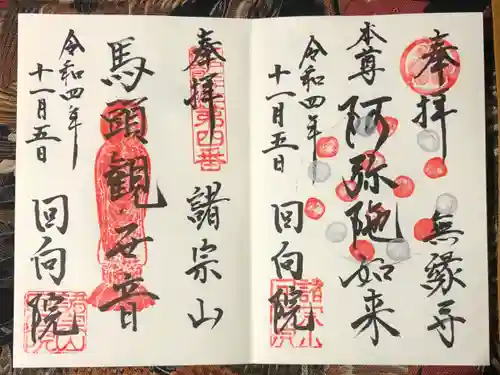 奉拝 無縁寺
本尊 阿弥陀如来
令和四年
十一月五日 回向院
奉拝 諸宗山
馬頭観世音
令和四年
十一月五日 回向院